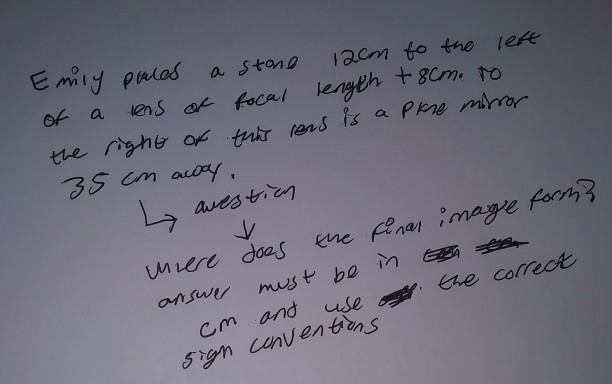 Emily places a stone 12cm to the left
of a lens of focal length +8cm. To
the right of this lens is a plane mirror
35 cm away.
↳ question
↓
where does the final image form?
answer must be in
cm and use the correct
sign conventions